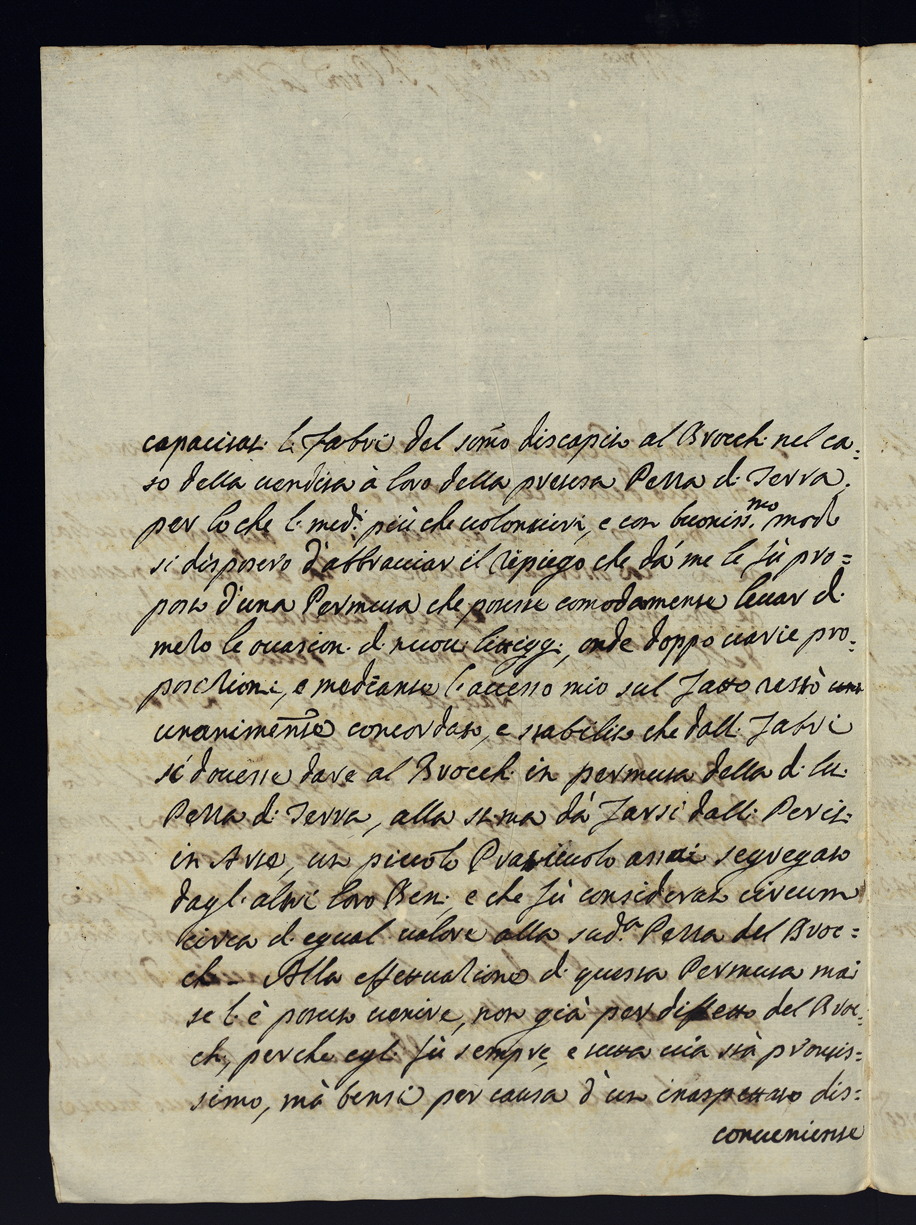 capacitati li Fabri del som̃o discapito al Brocchi nel ca=
so della vendita à loro della pretesa Pezza di Terra,
per loche li med.i più che volontieri, e con buoniss.mo modo
si disposero d'abbracciar il repiego che dà me le fù pro=
posto d'una Permuta che potesse comodamente levar di
mezo le occasioni di nuovi litiggi, onde doppo varie pro=
positioni, e mediante l'accesso mio sul fatto restò
unanimente concordato, e stabilito che dalli Fabri
si dovesse dare al Brocchi in permuta della di lui
Pezza di Terra, alla stima dà farsi dalli Periti
in Arte, un piccolo Praticciolo assai segregato
dagli altri loro Beni, e che fù considerato circum
circa di egual valore alla sud.a Pezza del Broc=
chi. Alla effettuatione di questa Permuta mai
se li è potuto venire, non già per diffetto del Broc=
chi, perche egli fù sempre, e tutta via stà prontis=
simo, mà bensi per causa d'un inaspettato dis=
conveniente